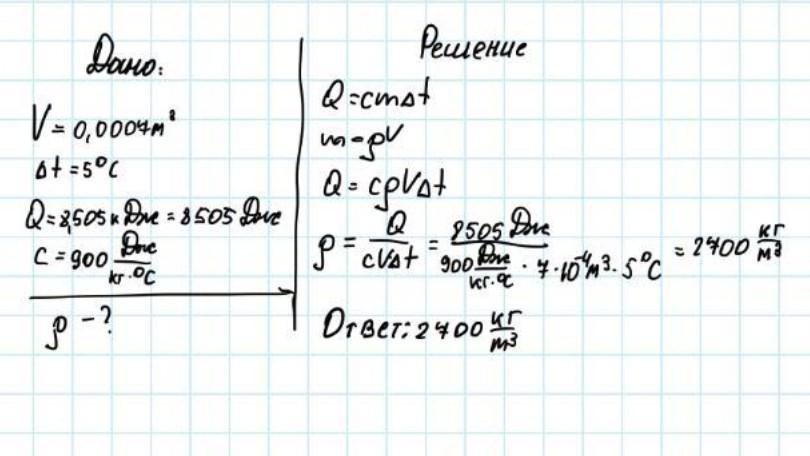 Дано:
V = 0,0007 м³
Δt = 5°C
Q = 8,505 кДж = 8505 Дж
c = 900 Дж/кг·°C
ρ - ?
Решение
Q = cmΔt
m = ρV
Q = cρVΔt
ρ = Q/cVΔt = 8505 Дж/900 Дж/кг·°C · 7·10⁻⁴ м³ · 5°C = 2700 кг/м³
Ответ: 2700 кг/м³